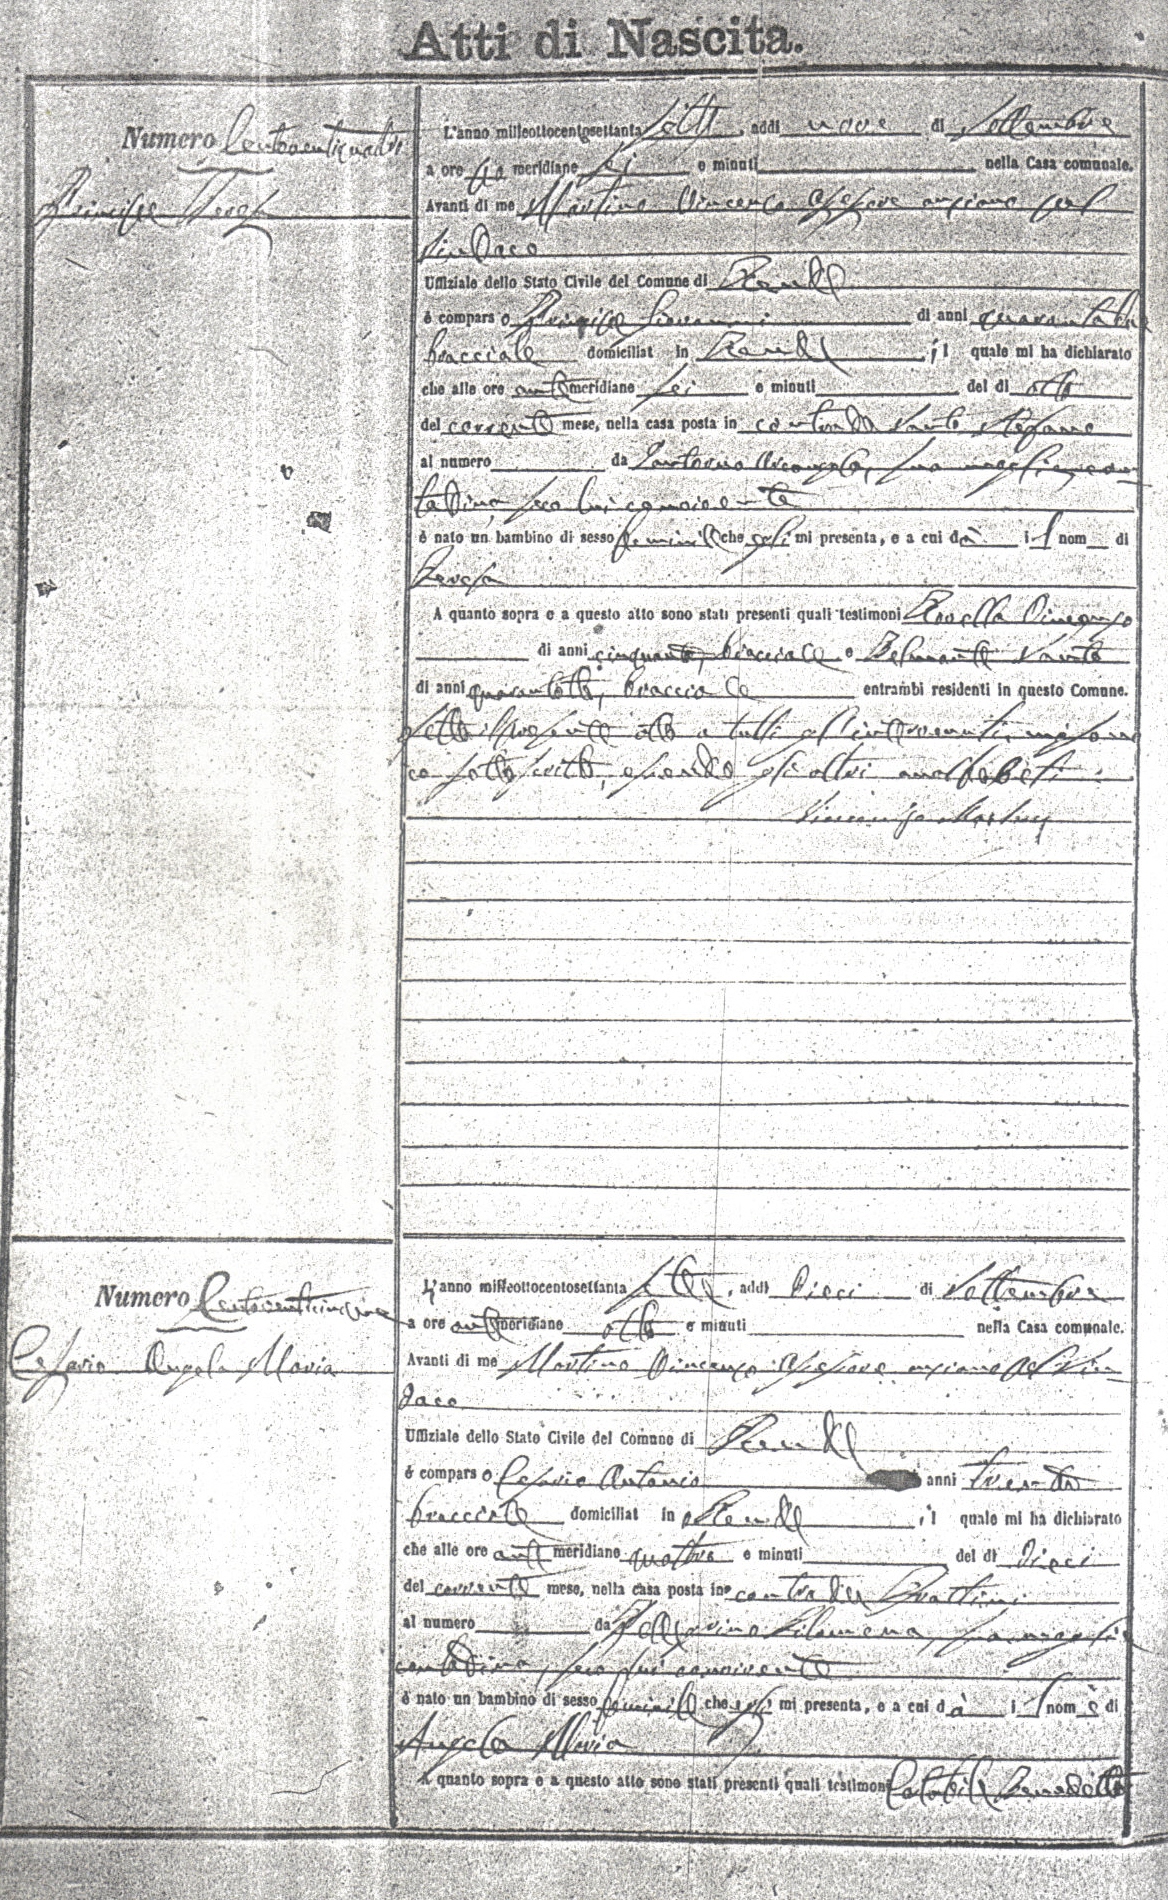 Atti di Nascita.
Numero Centoventiquattro
Principe Teresa
L'anno milleottocentosettanta sette, addi nove di Settembre
a ore meridiane sei e minuti nella Casa comunale.
Avanti di me Martino Vincenzo Assessore anziano pel
Sindaco
Uffiziale dello Stato Civile del Comune di Rende
è comparso Principe Giovanni di anni
bracciale domiciliat in Rende, il quale mi ha dichiarato
che alle ore ante meridiane sei e minuti del dì otto
del corrente mese, nella casa posta in contrada Santo Stefano
al numero da Arcangela, sua moglie, con
tadina, seco lui convivente
è nato un bambino di sesso feminile che egli mi presenta, e a cui dà il nom di
Teresa
A quanto sopra e a questo atto sono stati presenti quali testimoni Rovella Vincenzo
di anni cinquanta, bracciale e Belmonte Santo
di anni quarantotto, bracciale entrambi residenti in questo Comune.
Letto il presente atto a tutti gl'intervenuti,
sottoscritto, essendo gli altri analfabeti.
Vincenzo Martino
Numero Centoventicinque
Cesario Angela Maria
L'anno milleottocentosettanta sette, addì dieci di Settembre
a ore ante meridiane otto e minuti nella Casa comunale.
Avanti di me Martino Vincenzo Assessore anziano pel Sin
daco
Uffiziale dello Stato Civile del Comune di Rende
è comparso Cesario Antonio anni trenta
bracciale domiciliat in Rende, il quale mi ha dichiarato
che alle ore ante meridiane quattro e minuti del dì dieci
del corrente mese, nella casa posta in contrada
al numero da Pellegrino Filomena, sua moglie
contadina, seco lui convivente
è nato un bambino di sesso feminile che egli mi presenta, e a cui dà il nome di
Angela Maria
A quanto sopra e a questo atto sono stati presenti quali testimoni Benedetto